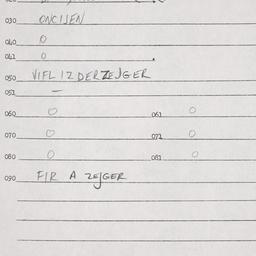 030 ONCIJEN
040 0
041 0
050 VIFL IZ DER ZEJGER
051 —
060 0 061 0
070 0 071 0
080 0 081 0
090 FIR A ZEJGER